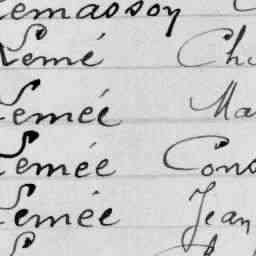 Lemasson
Lemé Cha
Lemée Ma
Lemée Cons
Lemée Jean